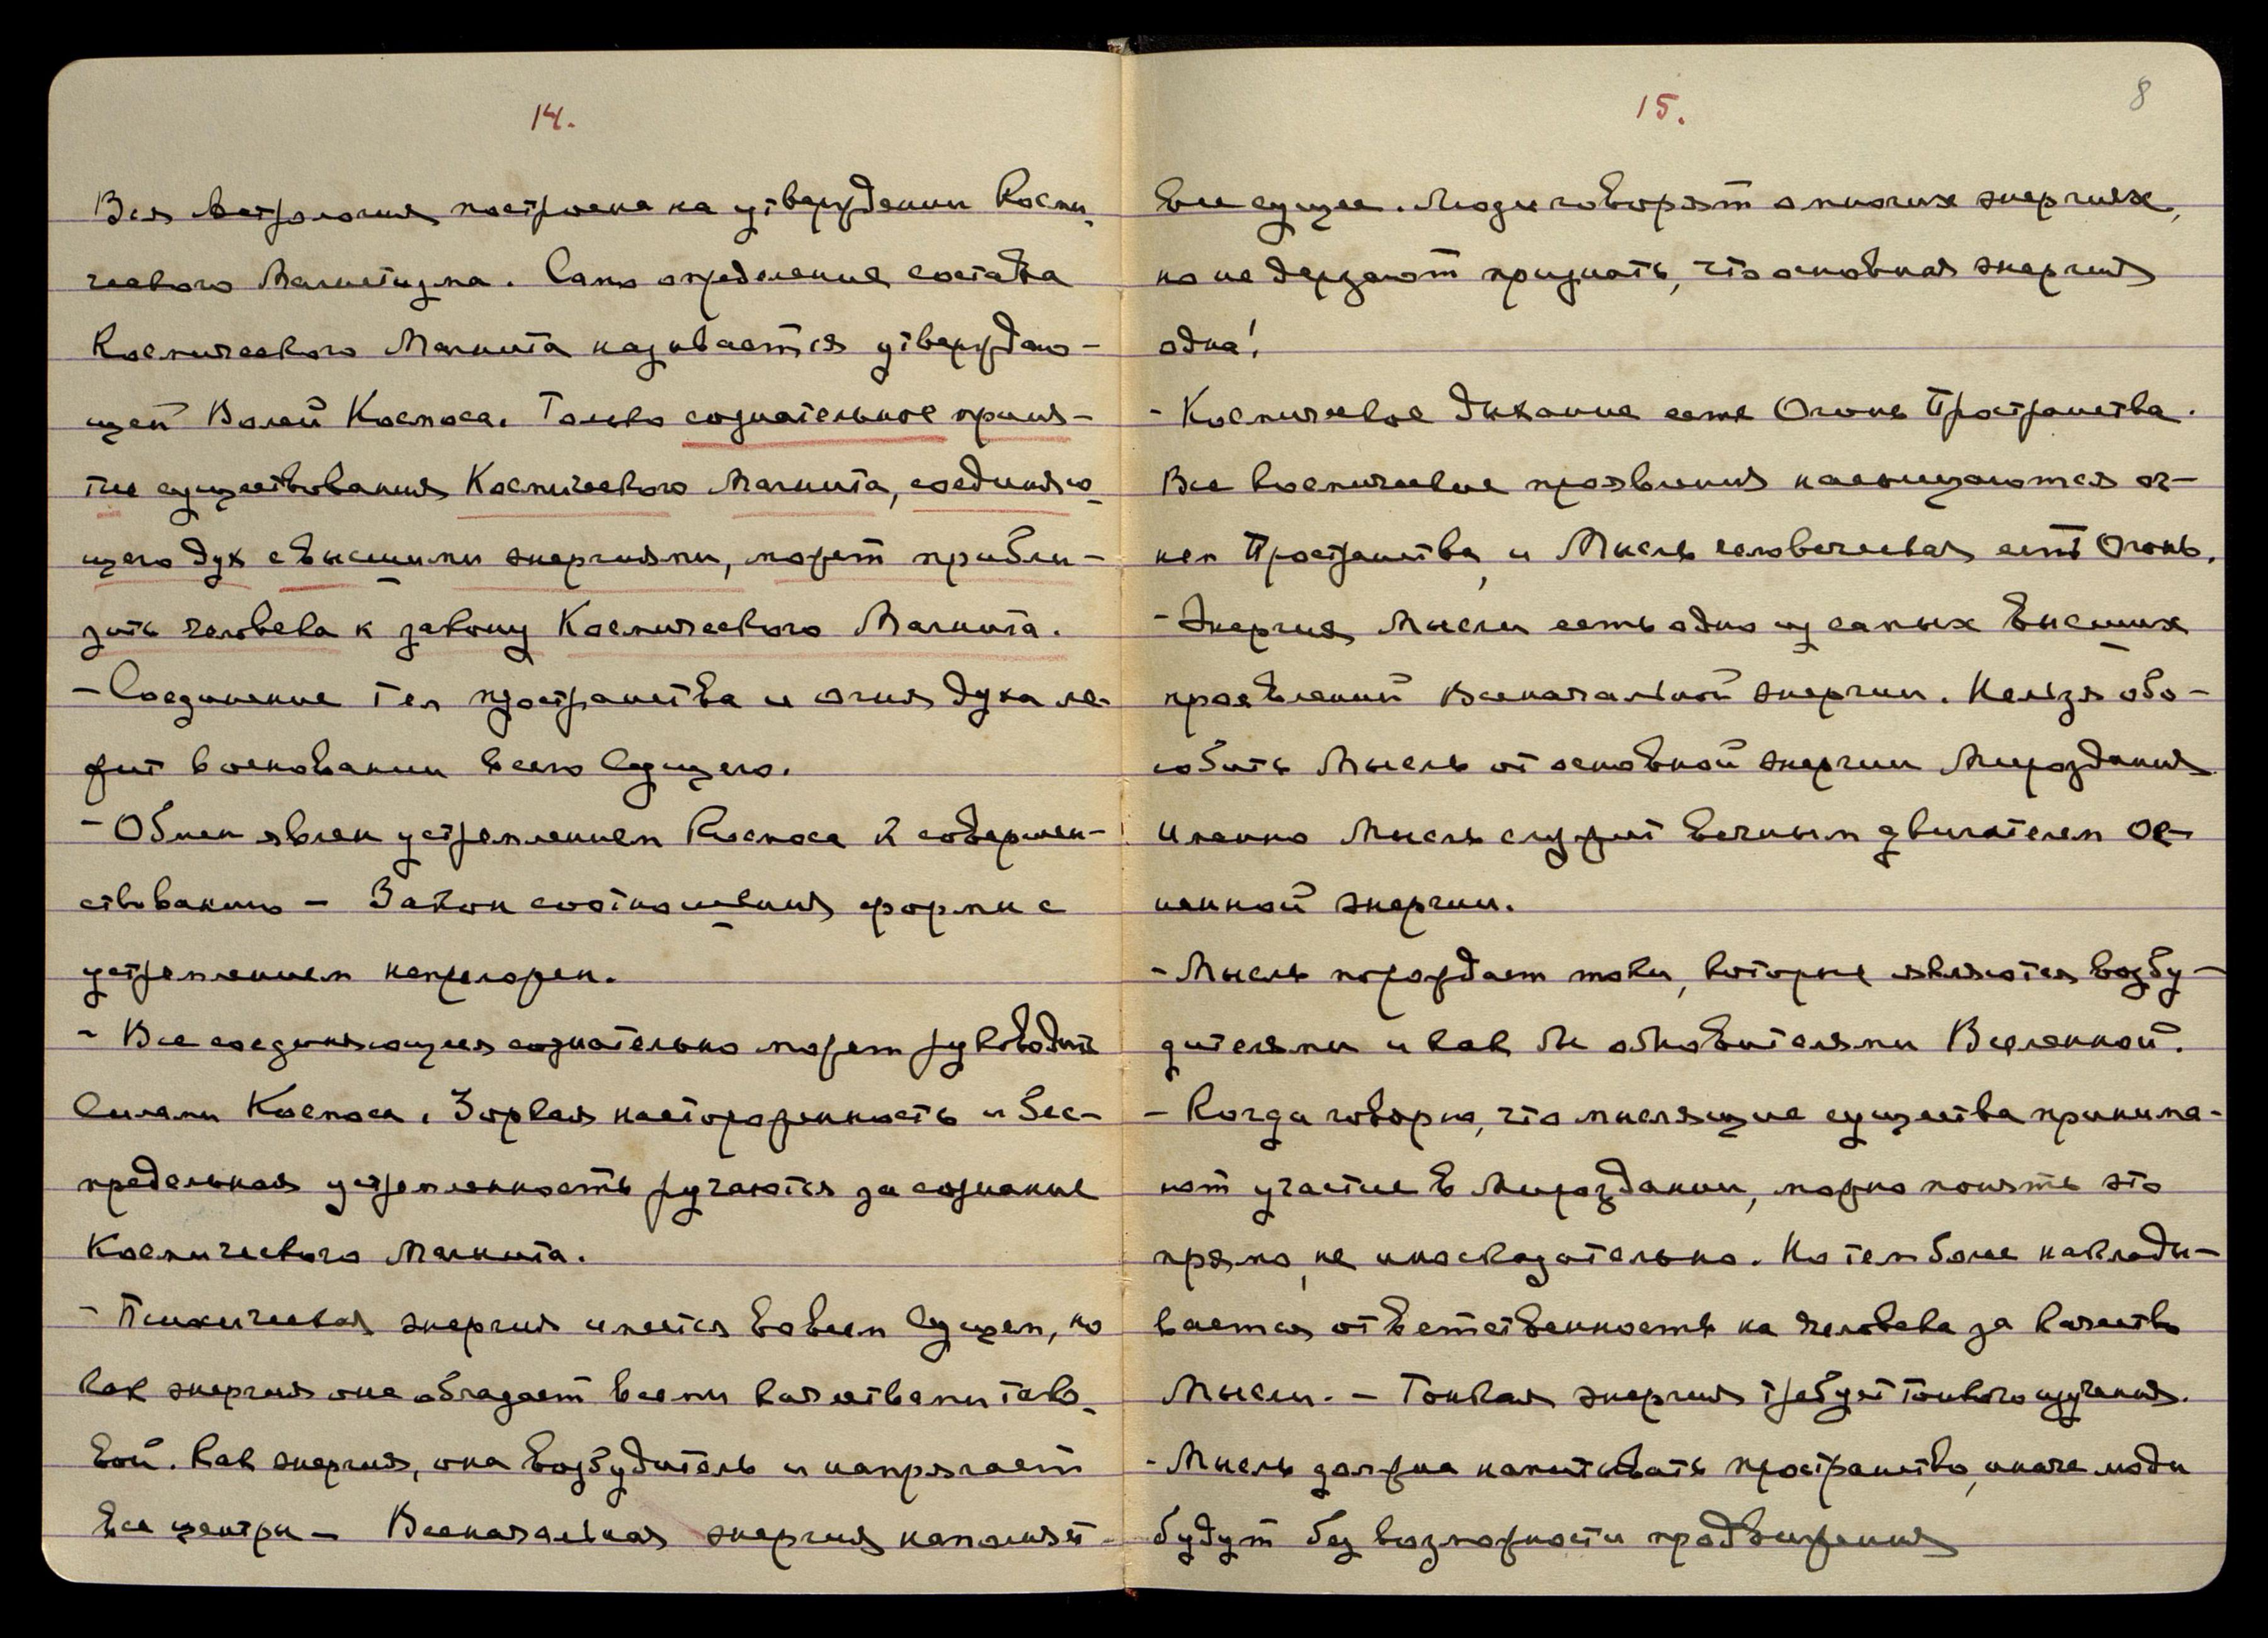 14.
Вся Астрология построена на утверждении Косми-
ческого Магнетизма. Само определение состава
Космического Магнита называется утверждаю-
щей Волей Космоса. Только сознательное приня-
тие существования Космического Магнита, соединяю-
щего дух с высшими энергиями, может прибли-
зить человека к закону Космического Магнита.
- Соединение тел пространства и огня духа ле-
жит в основании всего Сущего.
- Обмен явлен устремлением Космоса к совершен-
ствованию - Закон соотношения формы с
устремлением непреложен.
- Все соединяющееся сознательно может руководить
Силами Космоса. Зоркая настороженность и бес-
предельная устремленность ручаются за сознание
Космического Магнита.
- Психическая энергия имеется во всем Сущем, но
как энергия она обладает всеми качествами тако-
вой. Как энергия, она возбудитель и напрягает
все центры - Всеначальная энергия наполняет
15.
8
все сущее. Люди говорят о многих энергиях,
но не дерзают признать, что основная энергия
одна!
- Космическое дыхание есть Огонь Пространства.
Все космические проявления насыщаются ог-
нем Пространства, и Мысль человеческая есть Огонь.
- Энергия Мысли есть одно из самых высших
проявлений Всеначальной энергии. Нельзя обо-
собить Мысль от основной энергии Мироздания
Именно Мысль служит вечным двигателем ос-
новной энергии.
- Мысль порождает токи, которые являются возбу-
дителями и как бы обновителями Вселенной.
- Когда говорю, что мыслящие существа принима-
ют участие в Мироздании, можно понять это
прямо, не иносказательно. Но тем более наклады-
вается ответственность на человека за качество
Мысли. - Тонкая энергия требует тонкого изучения.
- Мысль должна напитывать пространство, иначе люди
будут без возможности продвижения